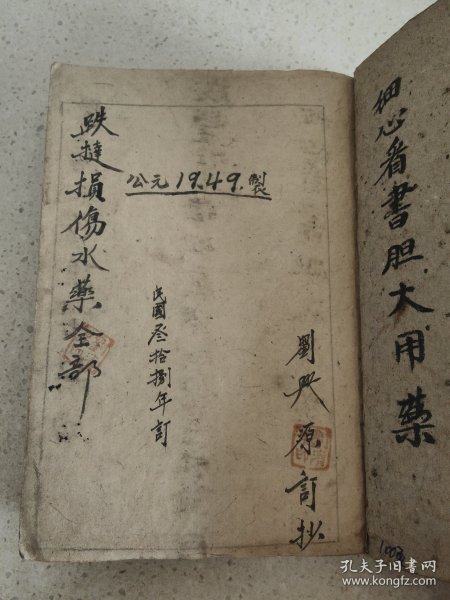 细心看書胆大用薬
公元1949.製
劉興源訂抄
民國叁拾捌年訂
跌撻損傷水藥全部
1003
孔夫子旧书网
www.kongfz.com